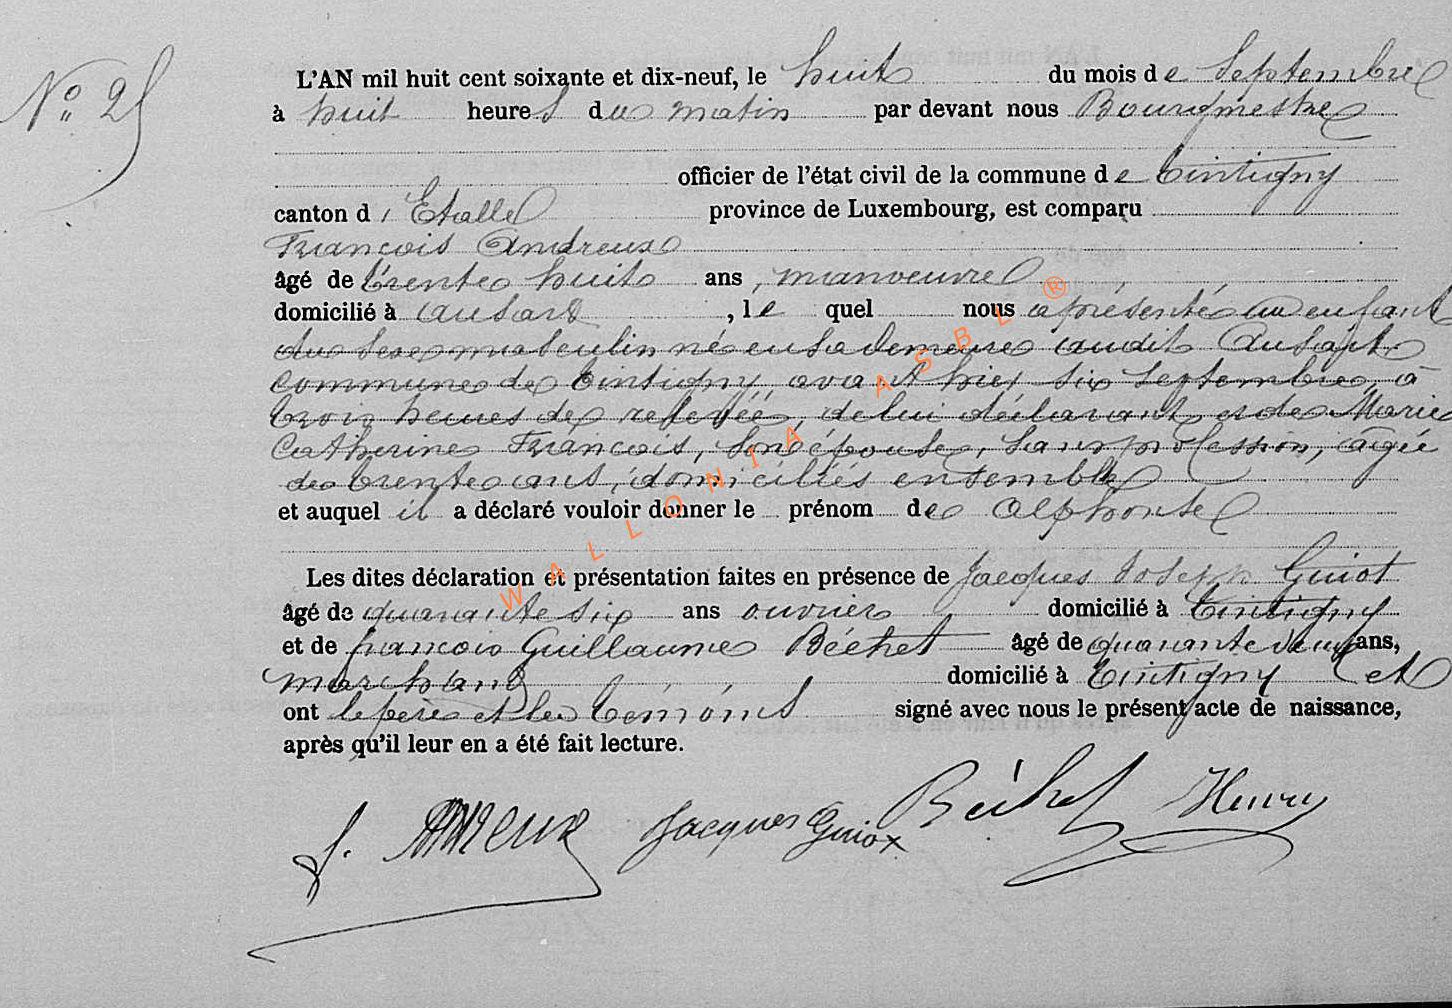 N° 25
L'AN mil huit cent soixante et dix-neuf, le huit du mois de Septembre
à huit heures du matin par devant nous Bourgmestre
officier de l'état civil de la commune de Tintigny
canton d'Etalle province de Luxembourg, est comparu
François Andreux
âgé de trente huit ans, manoeuvre
domicilié à Ansart, le quel nous a présenté un enfant
du sexe masculin né en sa demeure audit Ansart
commune de Tintigny, avant hier six Septembre, à
trois heures de relevée, de lui déclarant et de Marie
Catherine François, son épouse, sans profession, âgée
de trente ans, domiciliés ensemble
et auquel il a déclaré vouloir donner le prénom de Alphonse
Les dites déclaration et présentation faites en présence de Jacques Joseph Guiot
âgé de quarante six ans ouvrier domicilié à Tintigny
et de françois Guillaume Béchet âgé de quarante deux ans,
marchand domicilié à Tintigny et
ont le père et les témoins signé avec nous le présent acte de naissance,
après qu'il leur en a été fait lecture.
f. ANDREUX Jacques Guiot Béchet Henry
WALLONIA ASBL ®